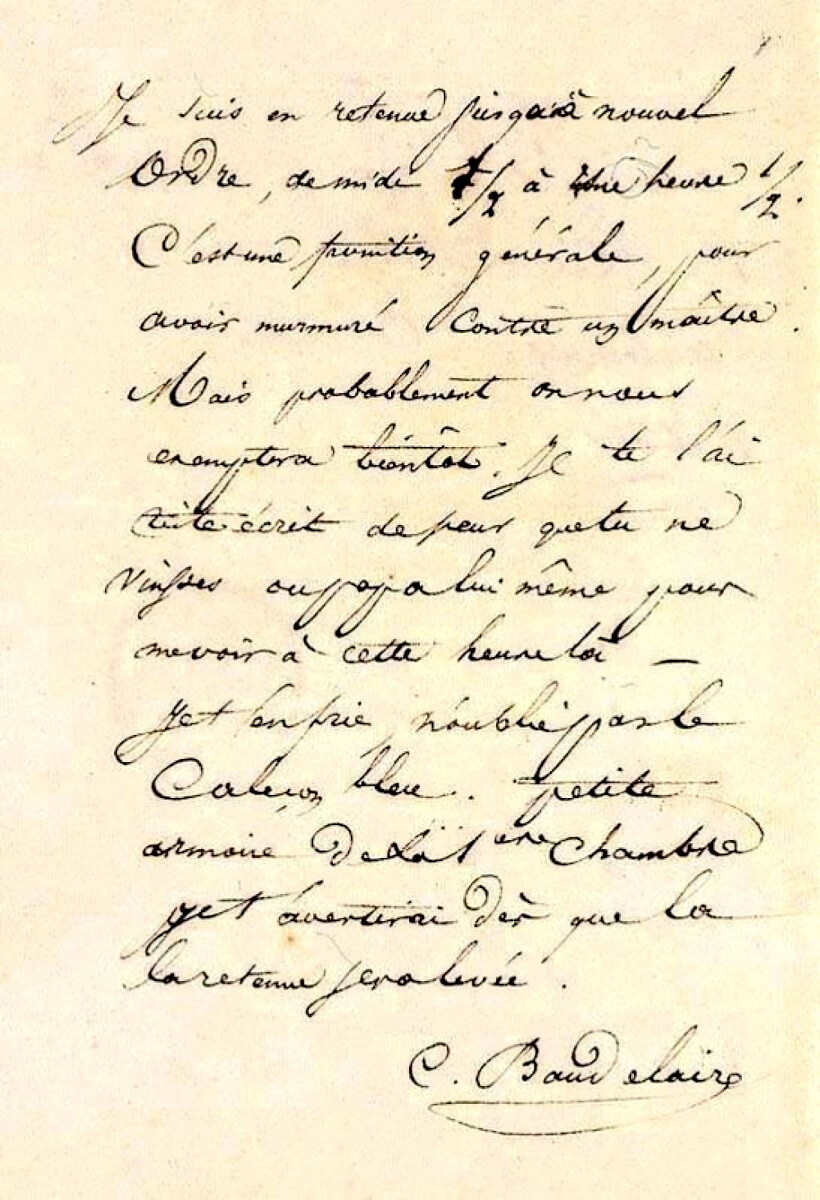 Je suis en retenue jusqu'à nouvel
Ordre, de midi 1/2 à une heure 1/2.
C'est une punition générale, pour
avoir murmuré contre un maître.
Mais probablement on nous
exemptera bientôt. Je te l'ai
écrit de peur que tu ne
vinsses ou papa lui même pour
me voir à cette heure là —
Je t'en prie, n'oublie pas le
Caleçon bleu. petite
armoire de la 1ere Chambre
je t'avertirai dès que la
la retenue sera levée.
C. Baudelaire